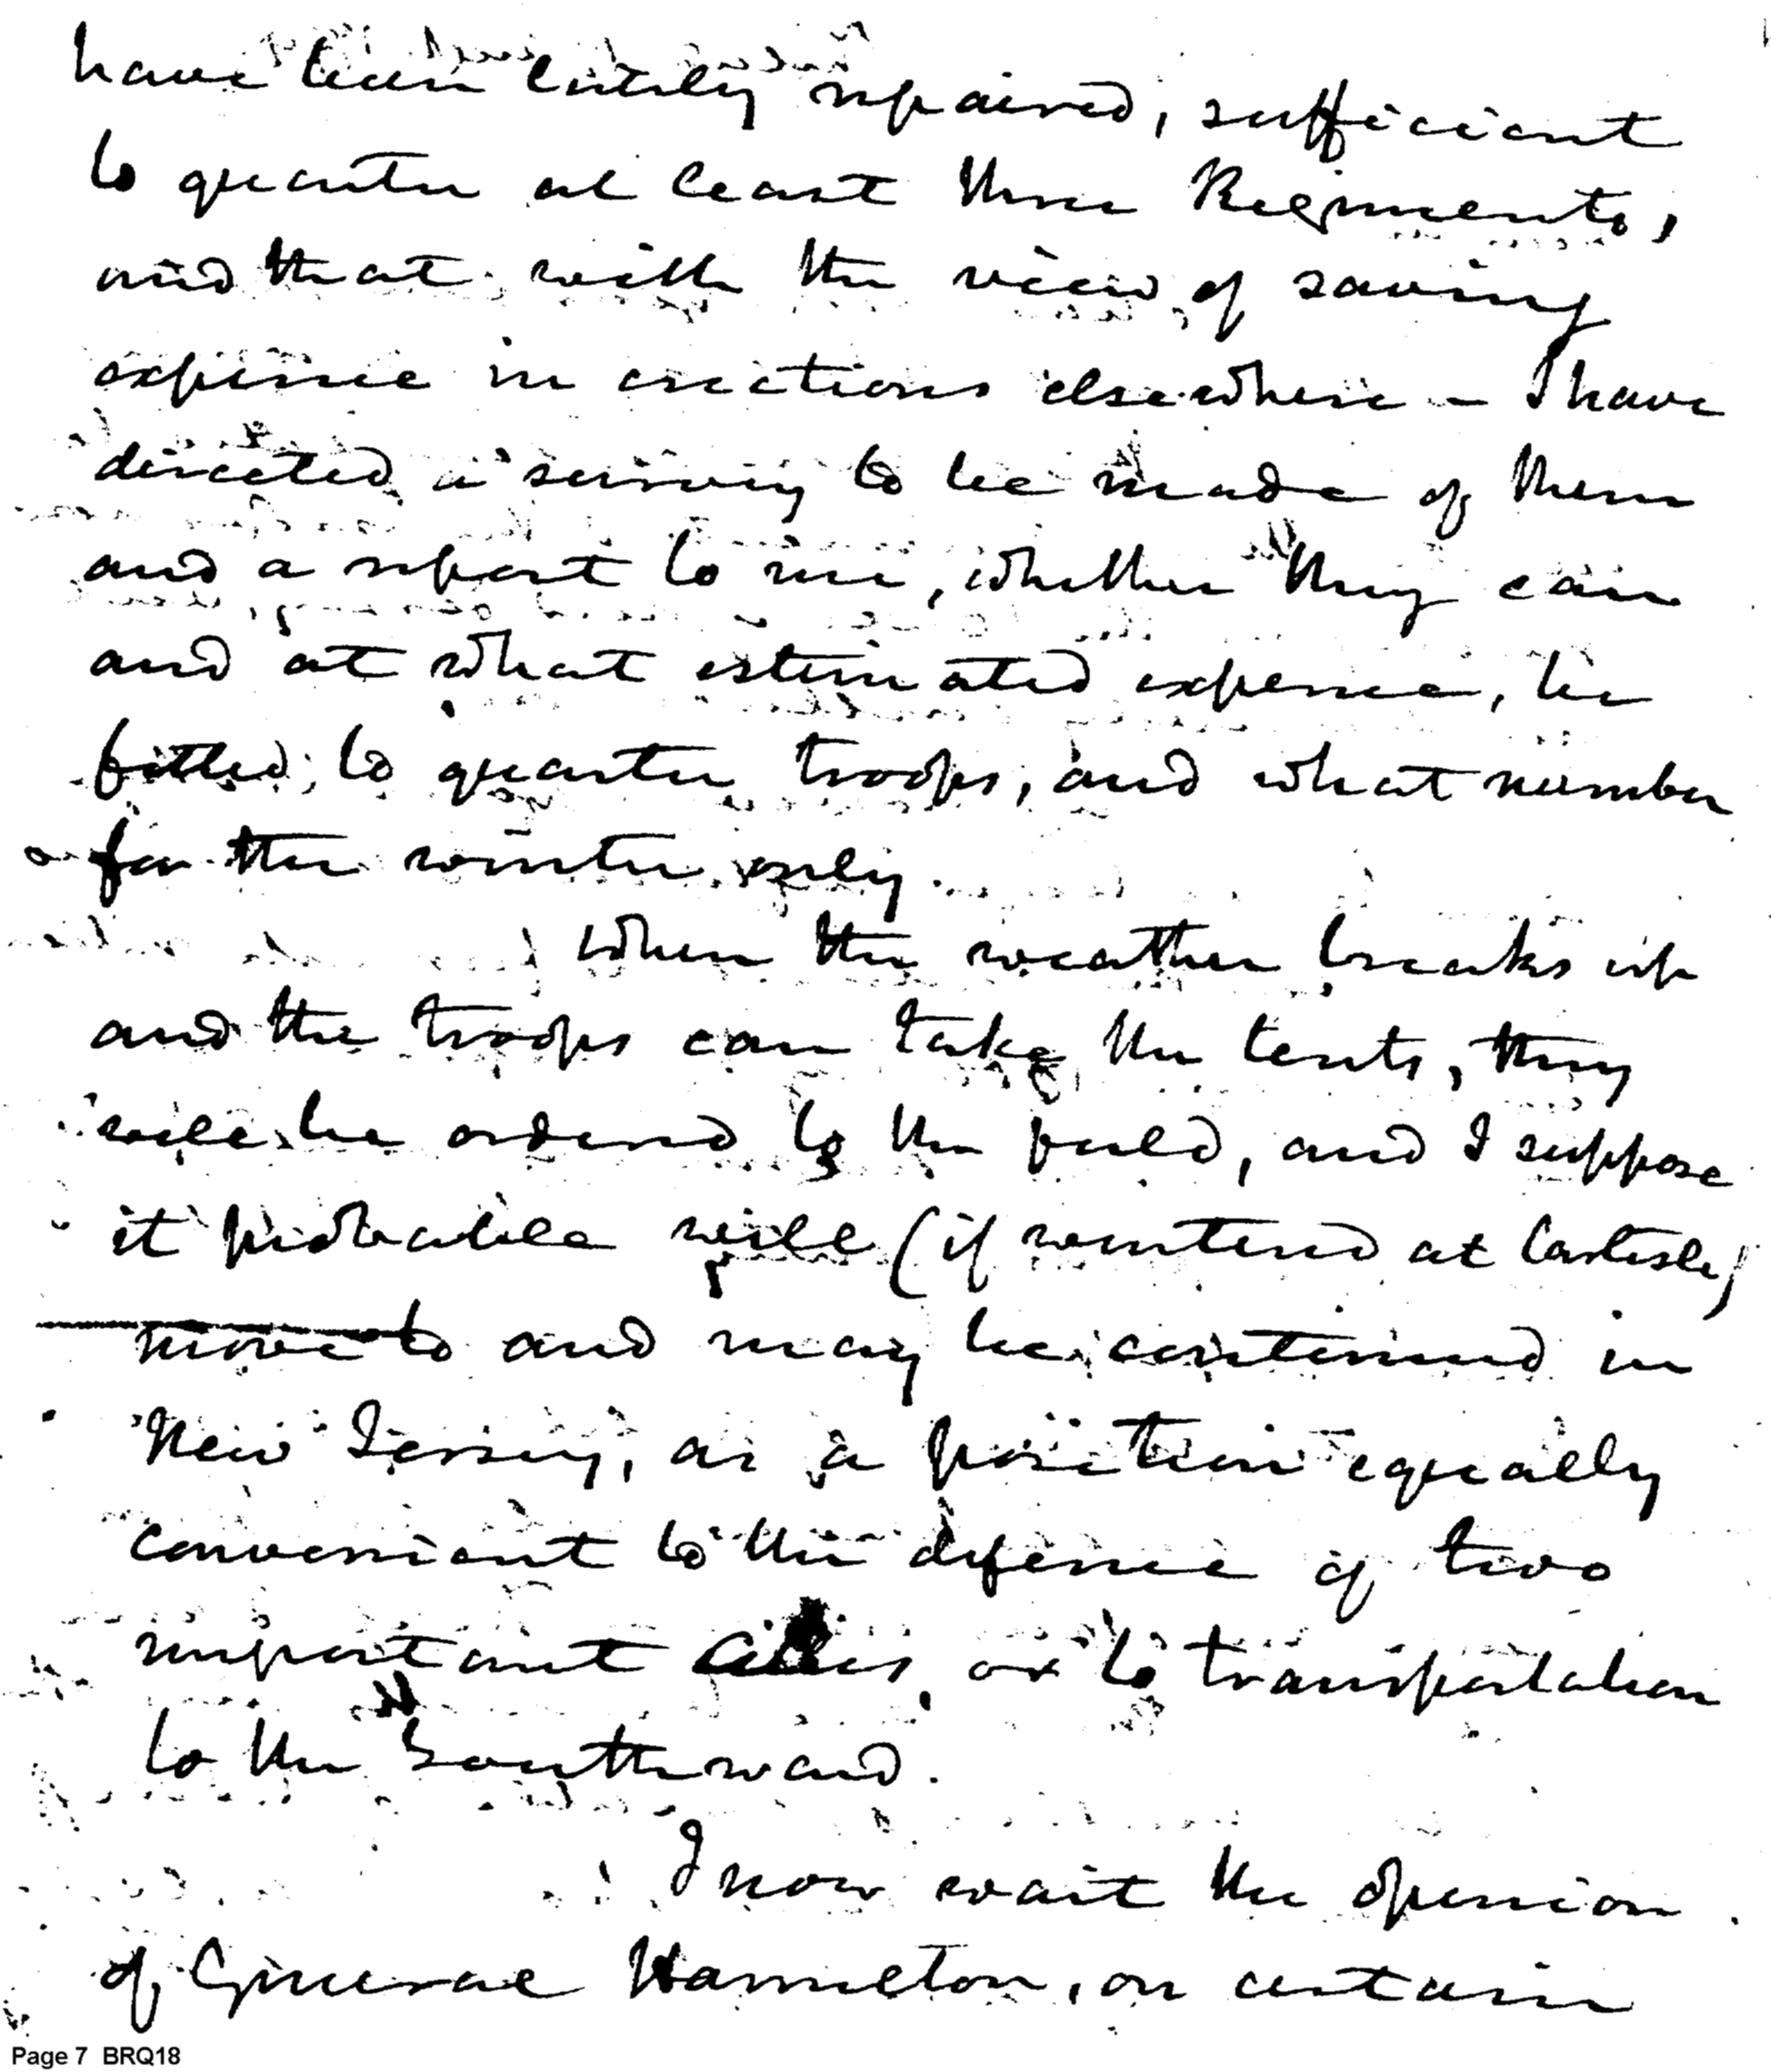 have been lately repaired, sufficient
to quarter at least three Regiments,
and that with the view of saving
expense in erections elsewhere – I have
directed a survey to be made of them
and a report to me, whether they can
and at what estimated expence, be
fitted to quarter troops, and what number
for the winter only.
When the weather breaks up
and the troops can take the tents, they
will be ordered to the field, and I suppose
it probable will (if wintered at Carlisle)
move to and may be continued in
New Jersey, as a position equally
convenient to the defence of two
important Cities, or to transportation
to the Southward.
I now wait the opinion
of General Hamilton, on certain
Page 7 BRQ18